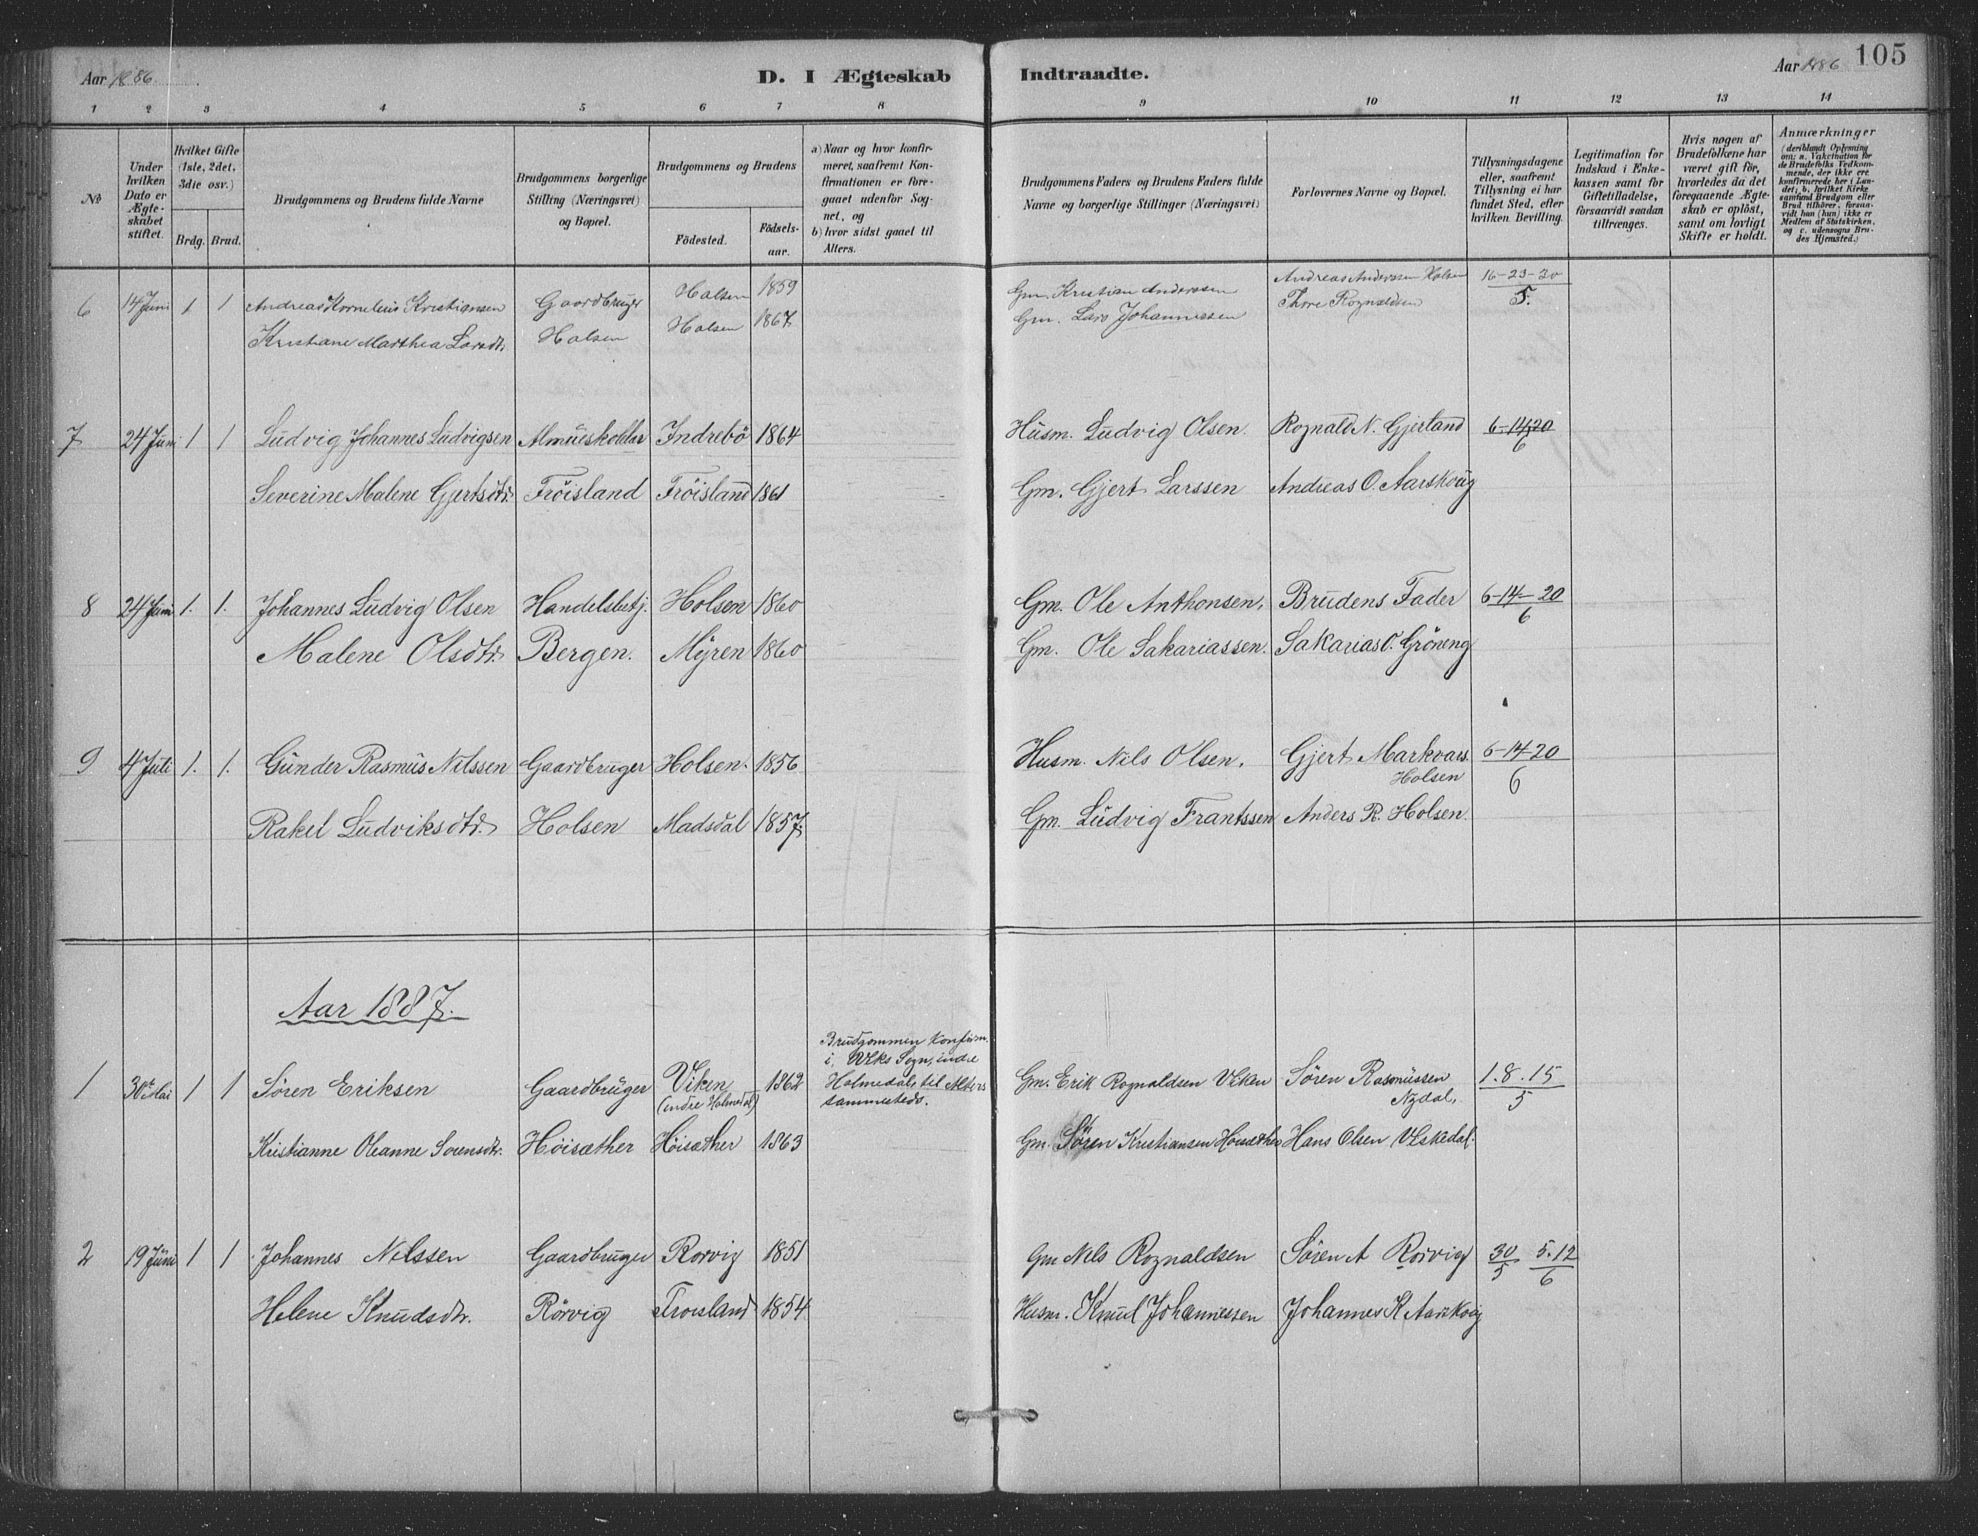 Aar 1886 D. I Ægteskab Indtraadte. Aar 1886 105
1 2 3 4 5 6 7 8 9 10 11 12 13 14
No
Under hvilken Dato er Ægteskabet stiftet.
Hvilket Gifte (1ste, 2det, 3die osv.)
Brdg. Brud.
Brudgommens og Brudens fulde Navne
Brudgommens borgerlige Stilling (Næringsvei) og Bopæl.
Brudgommens og Brudens
Fødested. Fødselsaar.
a) Naar og hvor konfirmeret, saafremt Konfirmationen er foregaaet udenfor Sognet, og
b) hvor sidst gaaet til Alters.
Brudgommens Faders og Brudens Faders fulde Navne og borgerlige Stillinger (Næringsvei)
Forlovernes Navne og Bopæl.
Tillysningsdagene eller, saafremt Tillysning ei har fundet Sted, efter hvilken Bevilling.
Legitimation for Indskud i Enkekassen samt for Giftetilladelse, forsaavidt saadan tiltrænges.
Hvis nogen af Brudefolkene har været gift før, hvorledes da det foregaaende Ægteskab er opløst, samt om lovligt Skifte er holdt.
Anmærkninger (deriblandt Oplysning om: a. Vakcination for de Brudefolks Vedkommende, der ikke ere konfirmerede her i Landet; b. hvilket Kirkesamfund Brudgom eller Brud tilhører, forsaavidt han (hun) ikke er Medlem af Statskirken, og c. udensogns Brudes Hjemsted.)
6 14 Juni 1 1 Andreas Kornelius Kristiansen Gaardbruger Holsen 1859 Gm. Kristian Anderssen Andreas Anderssen Holsen 16-23-30
Kristiane Marthea Larsdtr. Holsen Holsen 1867 Gm. Lars Johannessen Thore Rognaldsen 5.
7 24 Juni 1 1 Ludvig Johannes Ludvigsen Almueskolelær Indrebö 1864 Husm. Ludvig Olsen. Rognald N. Gjerland 6-14-20
6
Severine Malene Gjertsdtr. Fröisland Fröisland 1861 Gm. Gjert Larssen Andreas O. Aarskoug
8 24 Juni 1. 1. Johannes Ludvig Olsen Handelsbetj. Holsen 1860 Gm. Ole Anthonsen, Brudens Fader 6-14-20
6
Malene Olsdtr. Bergen. Myren 1860 Gm. Ole Sakariassen. Sakarias O. Gröneng
9 4 Juli 1. 1. Gunder Rasmus Nilssen Gaardbruger Holsen. 1856 Husm. Nils Olsen. Gjert Markvars. 6-14-20
Holsen 6
Rakel Ludviksdtr. Holsen Madsdal 1857. Gm. Ludvig Frantssen Anders R. Holsen.
Aar 1887.
Brudgommen konfirm.
i Vlks Sogn, indre
1 30te Mai 1 1 Søren Eriksen Gaardbruger Viken 1862 Holmedal, til Alters Gm. Erik Rognaldsen Søren Rasmussen 1.8.15
(indre Holmedal) sammesteds. Nydal, 5
Kristianne Oleanne Sorensdtr. Höisæther Höisæther 1863 Gm. Søren Kristiansen Höisæther Hans Olsen
2 19 Juni 1 1 Johannes Nilssen Gaardbruger Rorvig 1851 Gm Nils Rognaldsen Søren A Rorvig 30 5.12
5 6
Helene Knudsdtr. Rörvig Froisland 1854 Husm. Knud Johannessen Johannes K Aarskog